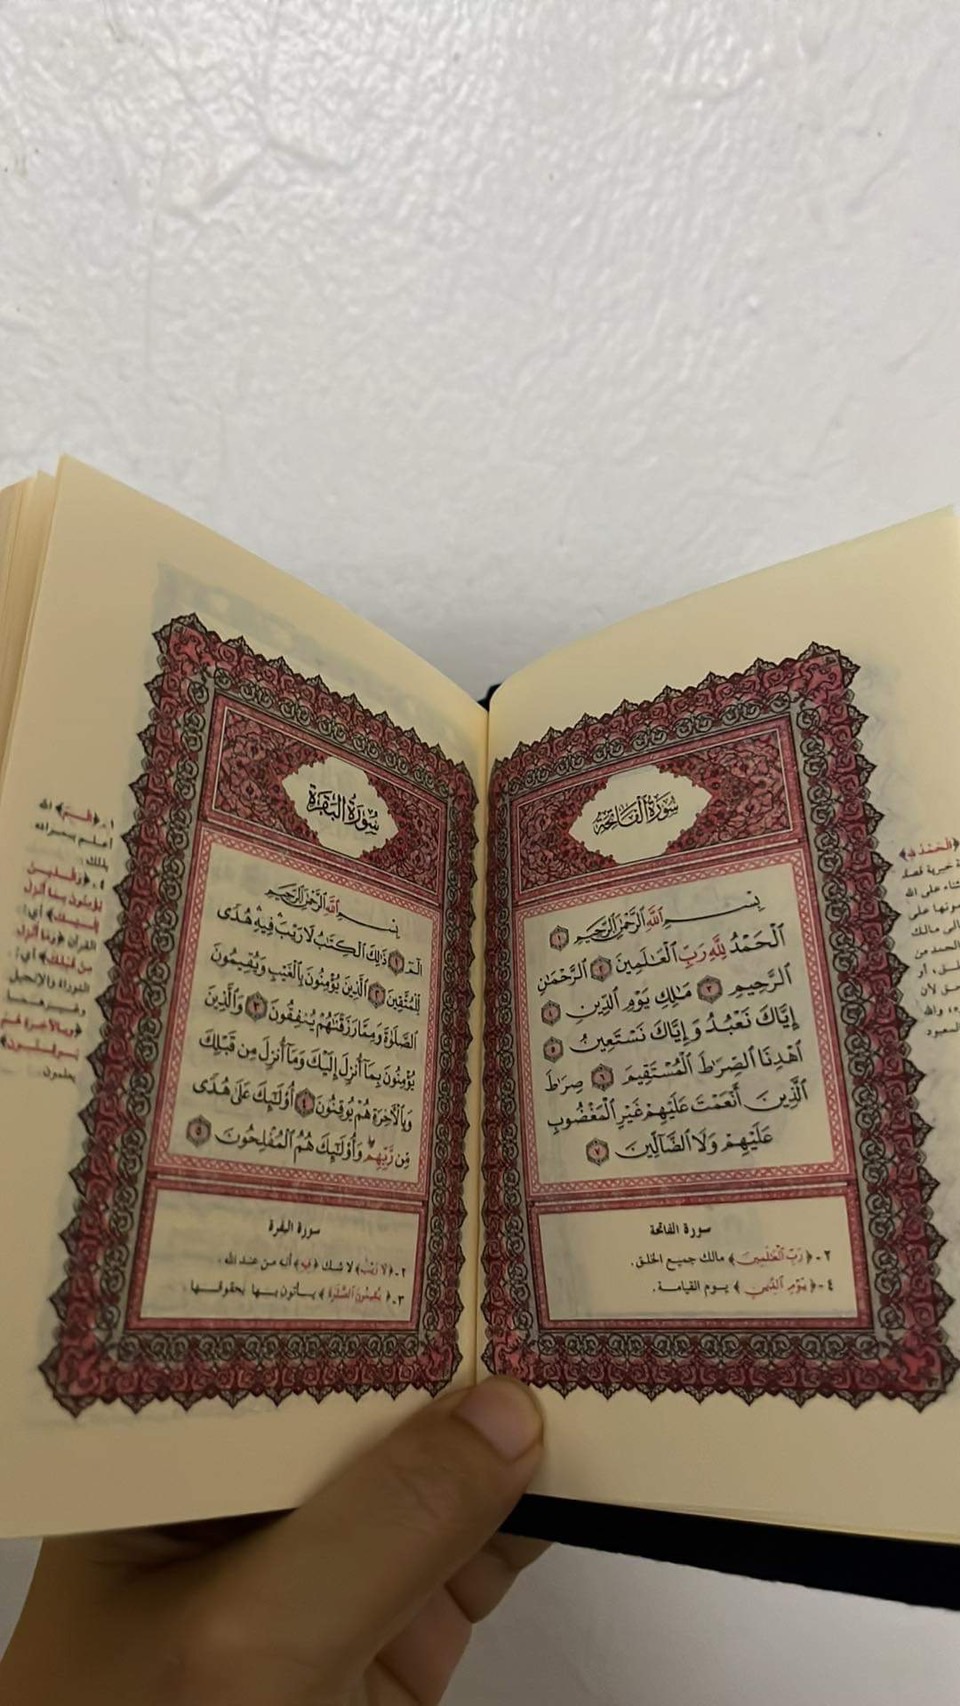 سُورَةُ الفَاتِحَة
بِسْمِ اللَّهِ الرَّحْمَٰنِ الرَّحِيمِ ١
الْحَمْدُ لِلَّهِ رَبِّ الْعَالَمِينَ ٢ الرَّحْمَٰنِ
الرَّحِيمِ ٣ مَالِكِ يَوْمِ الدِّينِ ٤
إِيَّاكَ نَعْبُدُ وَإِيَّاكَ نَسْتَعِينُ ٥
اهْدِنَا الصِّرَاطَ الْمُسْتَقِيمَ ٦ صِرَاطَ
الَّذِينَ أَنْعَمْتَ عَلَيْهِمْ غَيْرِ الْمَغْضُوبِ
عَلَيْهِمْ وَلَا الضَّالِّينَ ٧
سورة الفاتحة
٢-﴿رَبِّ الْعَٰلَمِينَ﴾ مالك جميع الخلق.
٤-﴿يَوْمِ الدِّينِ﴾ يوم القيامة.
﴿الْحَمْدُ لِلَّهِ﴾
خبرية قصد
على الله
إلى مالك
الحمد من
أو
لأن
والله
سُورَةُ البَقَرَة
بِسْمِ اللَّهِ الرَّحْمَٰنِ الرَّحِيمِ
الٓمٓ ١ ذَٰلِكَ الْكِتَٰبُ لَا رَيْبَ فِيهِ هُدًى
لِّلْمُتَّقِينَ ٢ الَّذِينَ يُؤْمِنُونَ بِالْغَيْبِ وَيُقِيمُونَ
الصَّلَوٰةَ وَمِمَّا رَزَقْنَٰهُمْ يُنفِقُونَ ٣ وَالَّذِينَ
يُؤْمِنُونَ بِمَا أُنزِلَ إِلَيْكَ وَمَا أُنزِلَ مِن قَبْلِكَ
وَبِالْآخِرَةِ هُمْ يُوقِنُونَ ٤ أُولَٰئِكَ عَلَىٰ هُدًى
مِّن رَّبِّهِمْ وَأُولَٰئِكَ هُمُ الْمُفْلِحُونَ ٥
سورة البقرة
٢-﴿لَا رَيْبَ﴾ لا شك ﴿فِيهِ﴾ أنه من عند الله.
٣-﴿يُقِيمُونَ الصَّلَوٰةَ﴾ يأتون بها بحقوقها
١-﴿الٓمٓ﴾ الله
أعلم بمراده
بذلك.
٤-﴿وَالَّذِينَ
يُؤْمِنُونَ بِمَا أُنزِلَ
إِلَيْكَ﴾ أي:
القرآن ﴿وَمَا أُنزِلَ
مِن قَبْلِكَ﴾ أي:
التوراة والإنجيل
وغيرهما
﴿وَبِالْآخِرَةِ هُمْ
يُوقِنُونَ﴾
يعلمون.